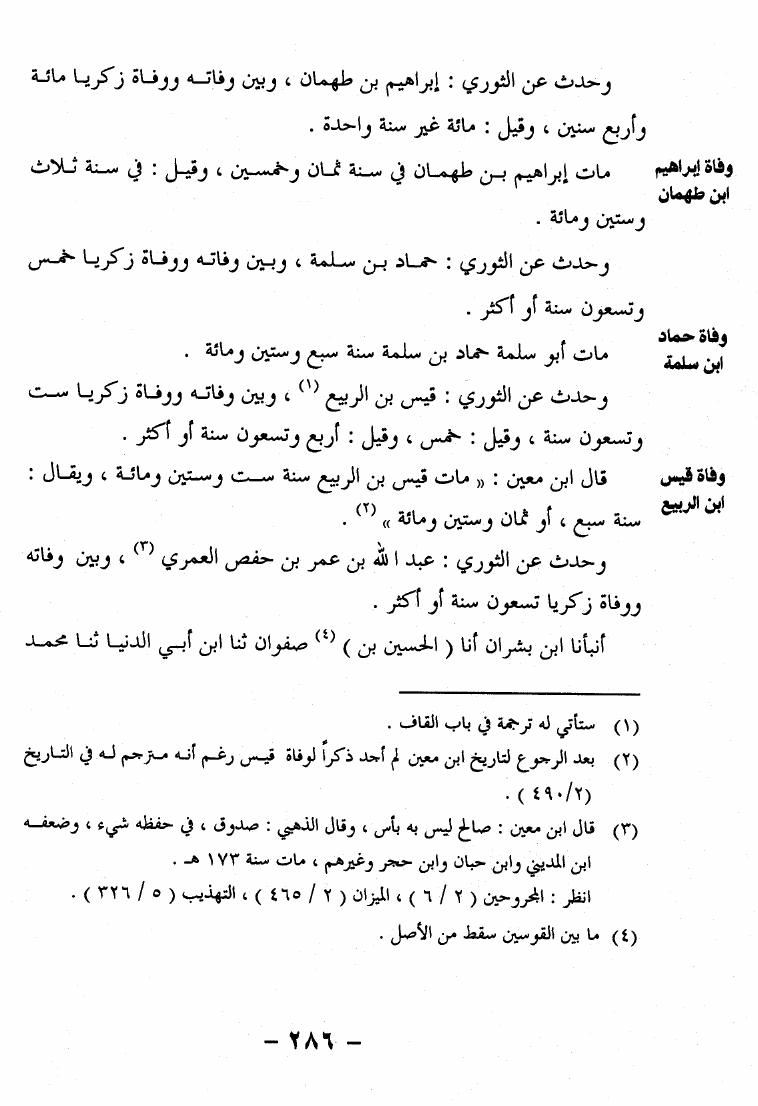 وحدث عن الثوري : إبراهيم بن طهمان ، وبين وفاتـه ووفـاة زكريـا مائـة
وأربع سنين ، وقيل : مائة غير سنة واحدة .
وفاة إبراهيم
ابن طهمان
مات إبراهيم بـن طهمـان في سـنة ثمـان وخمسـين ، وقيـل : في سـنة ثـلاث
وستين ومائة .
وحدث عن الثوري : حمـاد بـن سـلمة ، وبـين وفاتـه ووفـاة زكريـا خمـس
وتسعون سنة أو أكثر .
وفاة حماد
ابن سلمة
مات أبو سلمة حماد بن سلمة سنة سبع وستين ومائة .
وحدث عن الثوري : قيس بن الربيع (١) ، وبين وفاتـه ووفـاة زكريـا سـت
وتسعون سنة ، وقيل : خمس ، وقيل : أربع وتسعون سنة أو أكثر .
وفاة قيس
ابن الربيع
قال ابن معين : « مات قيس بن الربيع سنة سـت وسـتين ومائـة ، ويقـال :
سنة سبع ، أو ثمان وستين ومائة » (٢) .
وحدث عن الثوري : عبد الله بن عمر بن حفص العمري (٣) ، وبين وفاته
ووفاة زكريا تسعون سنة أو أكثر .
أنبأنا ابن بشران أنا ( الحسين بن ) (٤) صفوان ثنا ابن أبـي الدنيـا ثنـا محمـد
(١) ستأتي له ترجمة في باب القاف .
(٢) بعد الرجوع لتاريخ ابن معين لم أحد ذكراً لوفاة قيـس رغـم أنـه مـترجم لـه في التـاريخ
(٤٩٠/٢ ) .
(٣) قال ابن معين : صالح ليس به بأس ، وقال الذهبي : صدوق ، في حفظه شيء ، وضعفـه
ابن المديني وابن حبان وابن حجر وغيرهم ، مات سنة ١٧٣ هـ .
انظر : المجروحين ( ٢ / ٦ ) ، الميزان ( ٢ / ٤٦٥ ) ، التهذيب ( ٥ / ٣٢٦ ) .
(٤) ما بين القوسين سقط من الأصل .
- ٢٨٦ -